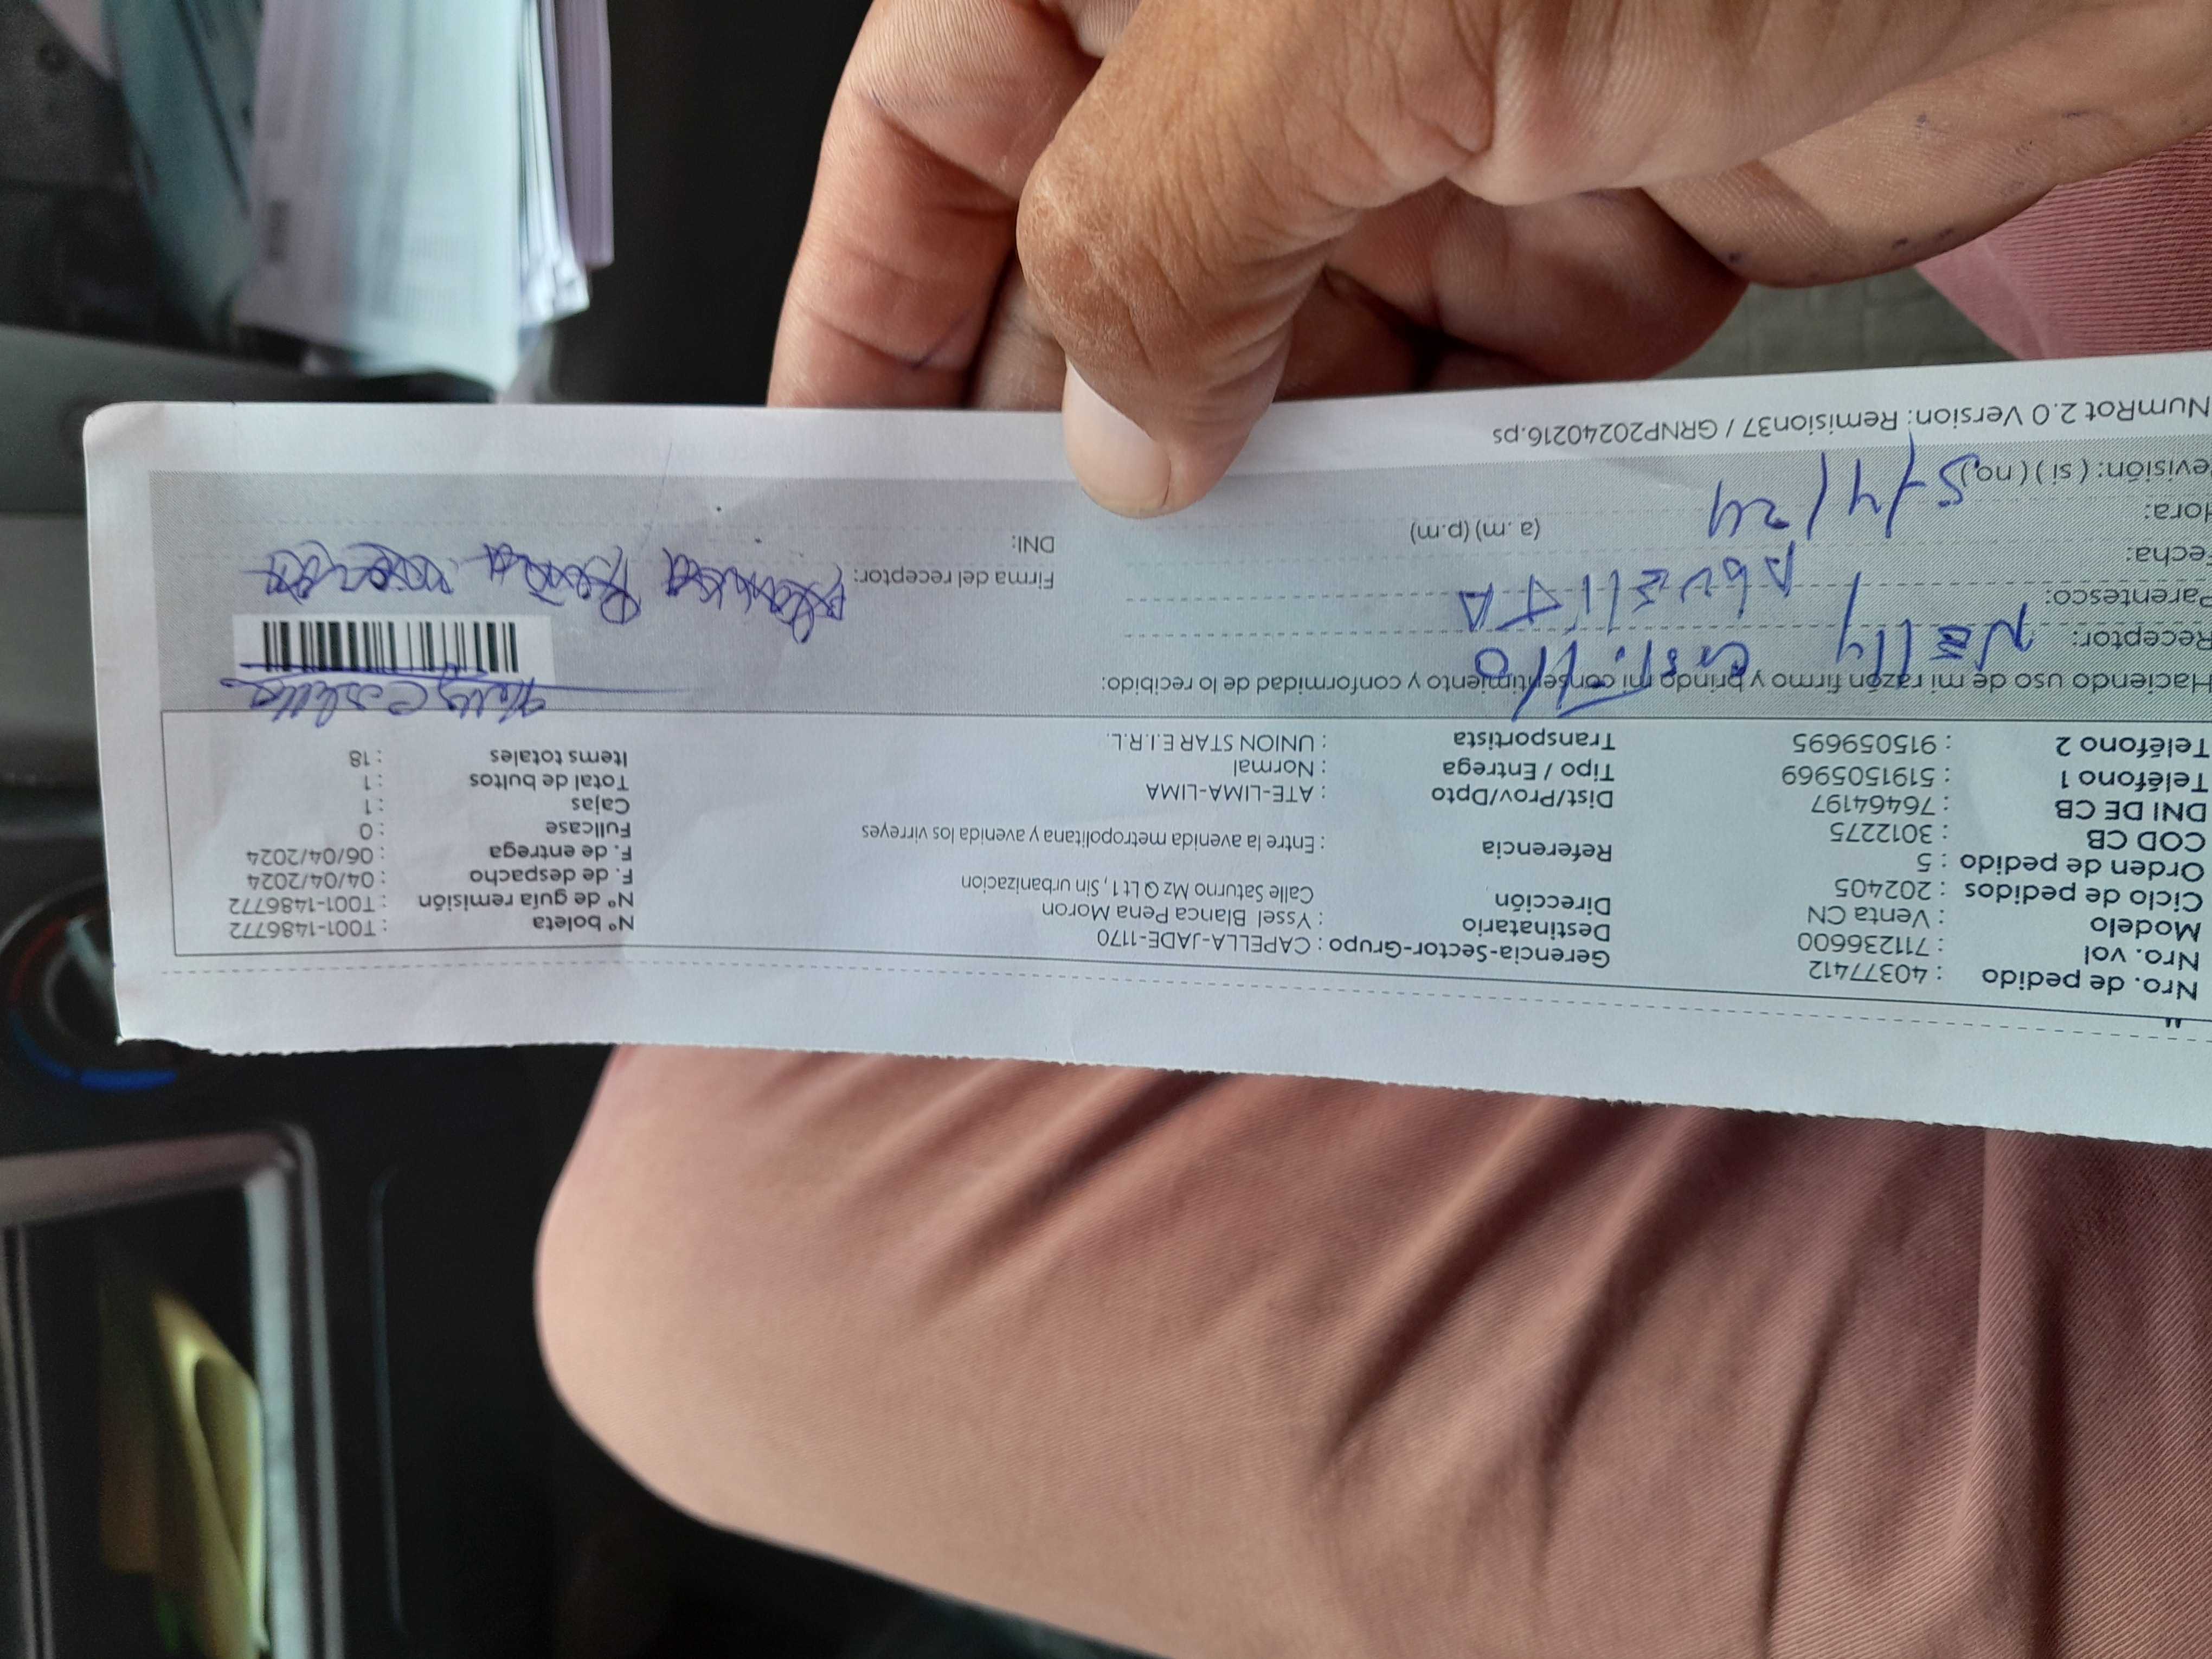 Nro. de pedido : 40377412
Nro. vol : 711236600
Modelo : Venta CN
Ciclo de pedidos : 202405
Orden de pedido : 5
COD CB : 3012275
DNI DE CB : 76464197
Teléfono 1 : 5191505969
Teléfono 2 : 915059695
Gerencia-Sector-Grupo : CAPELLA-JADE-1170
Destinatario : Yssel Blanca Pena Moron
Dirección Calle Saturno Mz Q Lt 1, Sin urbanizacion
Referencia : Entre la avenida metropolitana y avenida los virreyes
Dist/Prov/Dpto : ATE-LIMA-LIMA
Tipo / Entrega : Normal
Transportista : UNION STAR E.I.R.L.
N° boleta : T001-1486772
N° de guía remisión : T001-1486772
F. de despacho : 04/04/2024
F. de entrega : 06/04/2024
Fullcase : 0
Cajas : 1
Total de bultos : 1
Items totales : 18
Haciendo uso de mi razón firmo y brindo mi consentimiento y conformidad de lo recibido:
Receptor: Nelly Castillo
Parentesco: AbuelitA
Fecha:
Hora: 5/4/24 (a. m) (p.m)
evisión: ( si ) ( no )
Nelly Castillo
Firma del receptor:
DNI:
NumRot 2.0 Version: Remision37 / GRNP20240216.ps